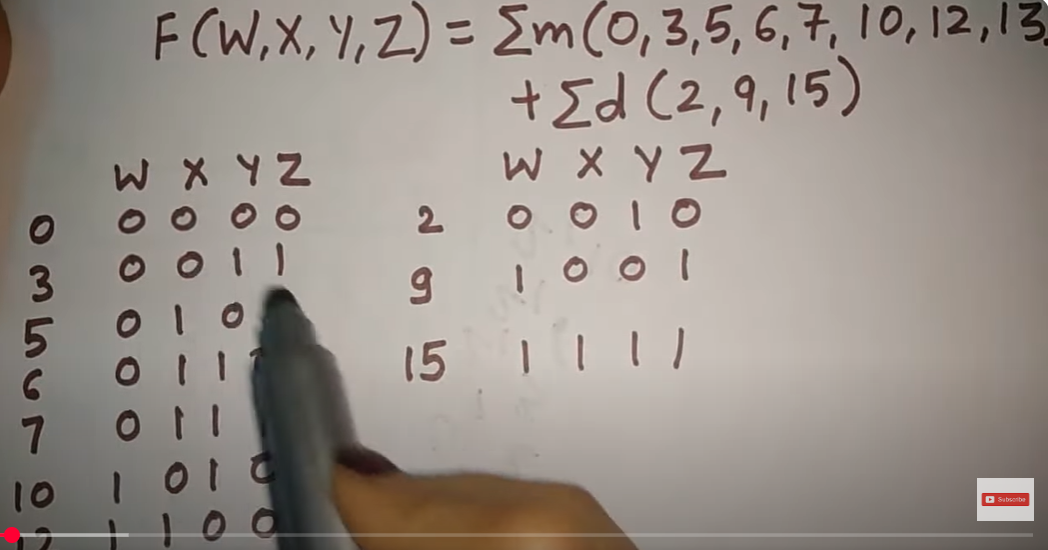 F(W,X,Y,Z) = Σm(0,3,5,6,7,10,12,13
+ Σd (2,9,15)
W X Y Z
0 0 0 0 0
3 0 0 1 1
5 0 1 0
6 0 1 1
7 0 1 1
10 1 0 1 0
12 1 1 0 0
W X Y Z
2 0 0 1 0
9 1 0 0 1
15 1 1 1 1
Subscribe